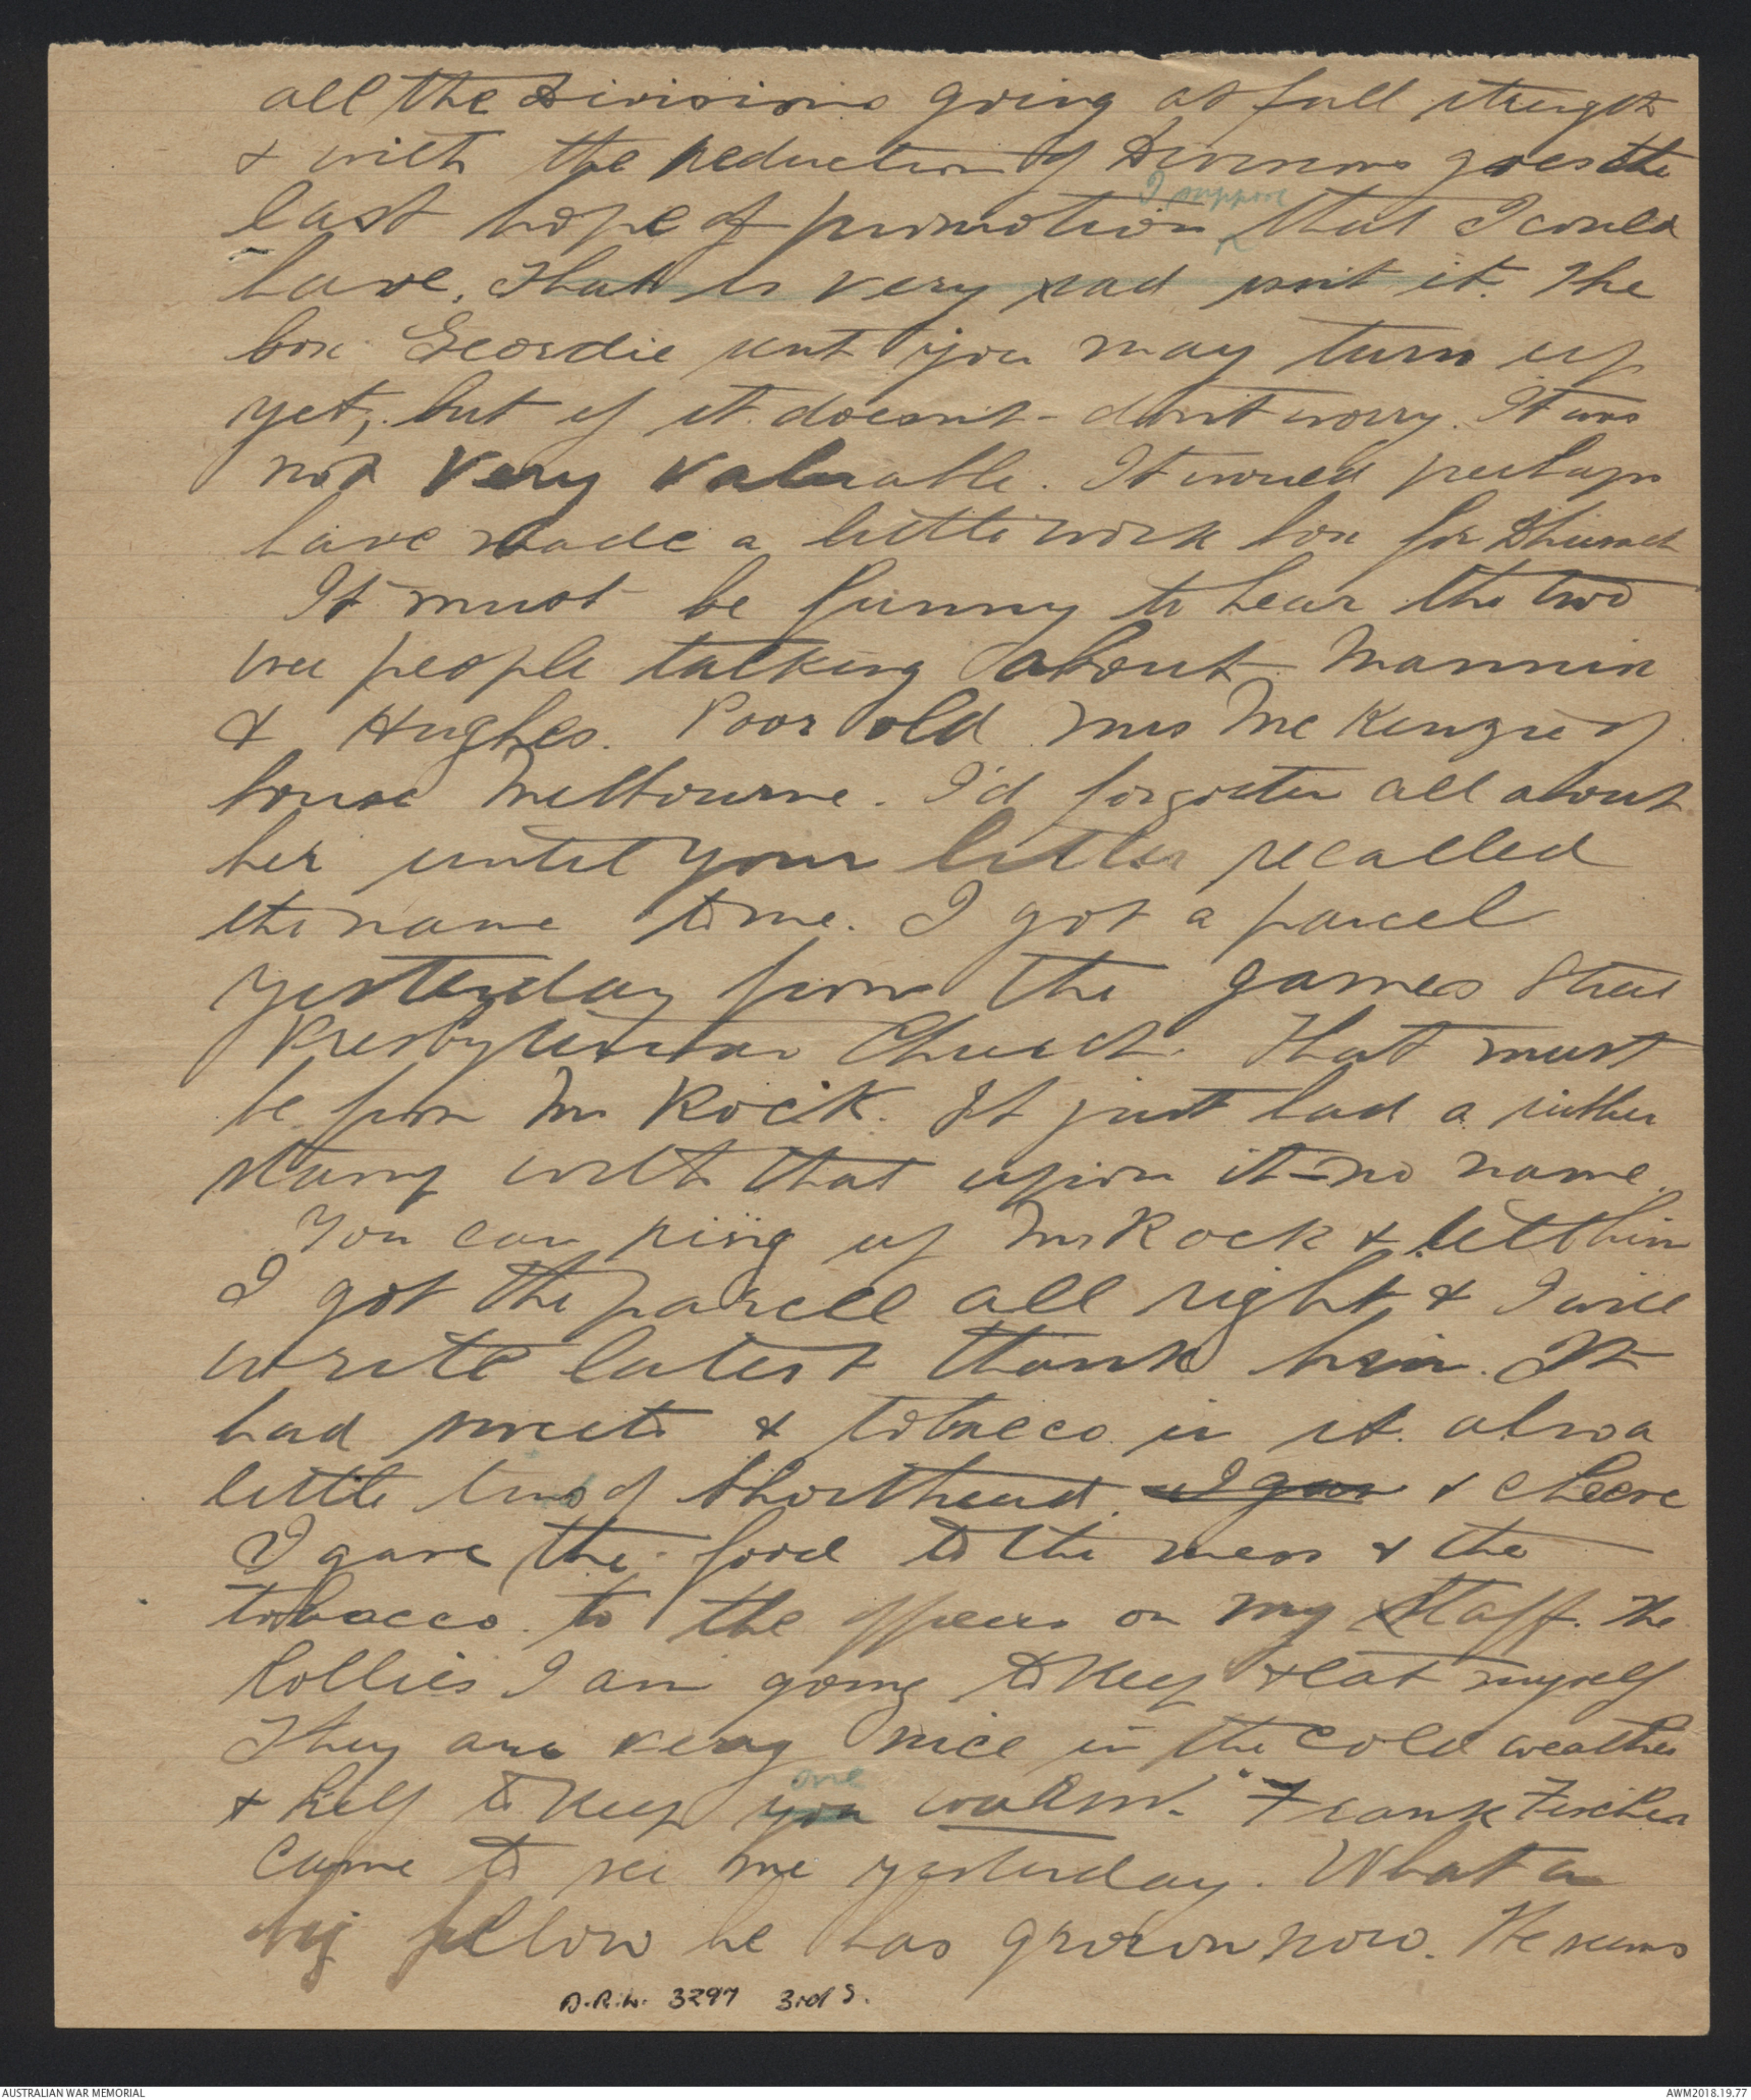 all the Divisions going at full strength
& with the reduction of Divisions goes the
I suppose
last hope of promotion ^ that I could
have. That is very sad isn't it. The
box Geordie sent you may turn up
yet, but if it doesn't - don't worry. It was
not very valuable. It would perhaps
have made a little work box for
It must be funny to hear the two
wee people talking about Mannix
& Hughes. Poor old Mrs McKenzie of
house Melbourne. I'd forgotten all about
her until your letter recalled
the name to me. I got a parcel
yesterday from the James Street
Presbyterian Church. That must
be from Mr Rock. It just had a rubber
stamp with that upon it - no name.
You can ring up Mr Rock & let him
I got the parcell all right, & I will
write later & thank him. It
had sweets & tobacco in it. also a
little tins of Shortbread. I gave & cheese
I gave the food to the mess & the
tobacco to the officers on my staff. The
lollies I am going to keep & eat myself
They are very nice in the cold weather
one
& help to keep you warm." Frank Fischer
came to see me yesterday. What a
big fellow he has grown now. He seems
D.R.L. 3297 3rd S.
AUSTRALIAN WAR MEMORIAL
AWM2018.19.77